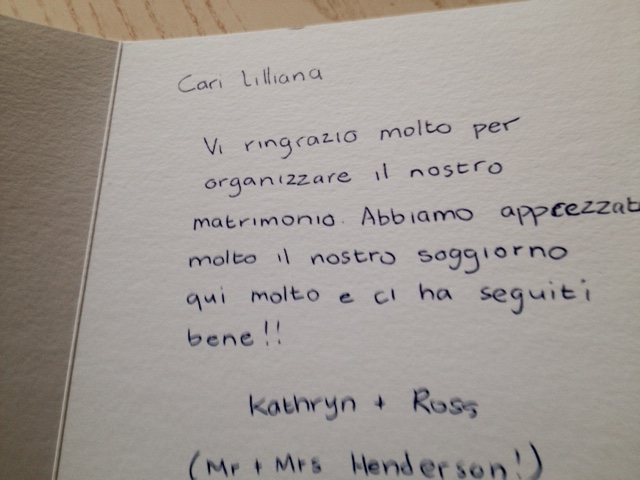 Cari Lilliana
Vi ringrazio molto per
organizzare il nostro
matrimonio. Abbiamo apprezzat
molto il nostro soggiorno
qui molto e ci ha seguiti
bene!!
Kathryn + Ross
(Mr + Mrs Henderson!)